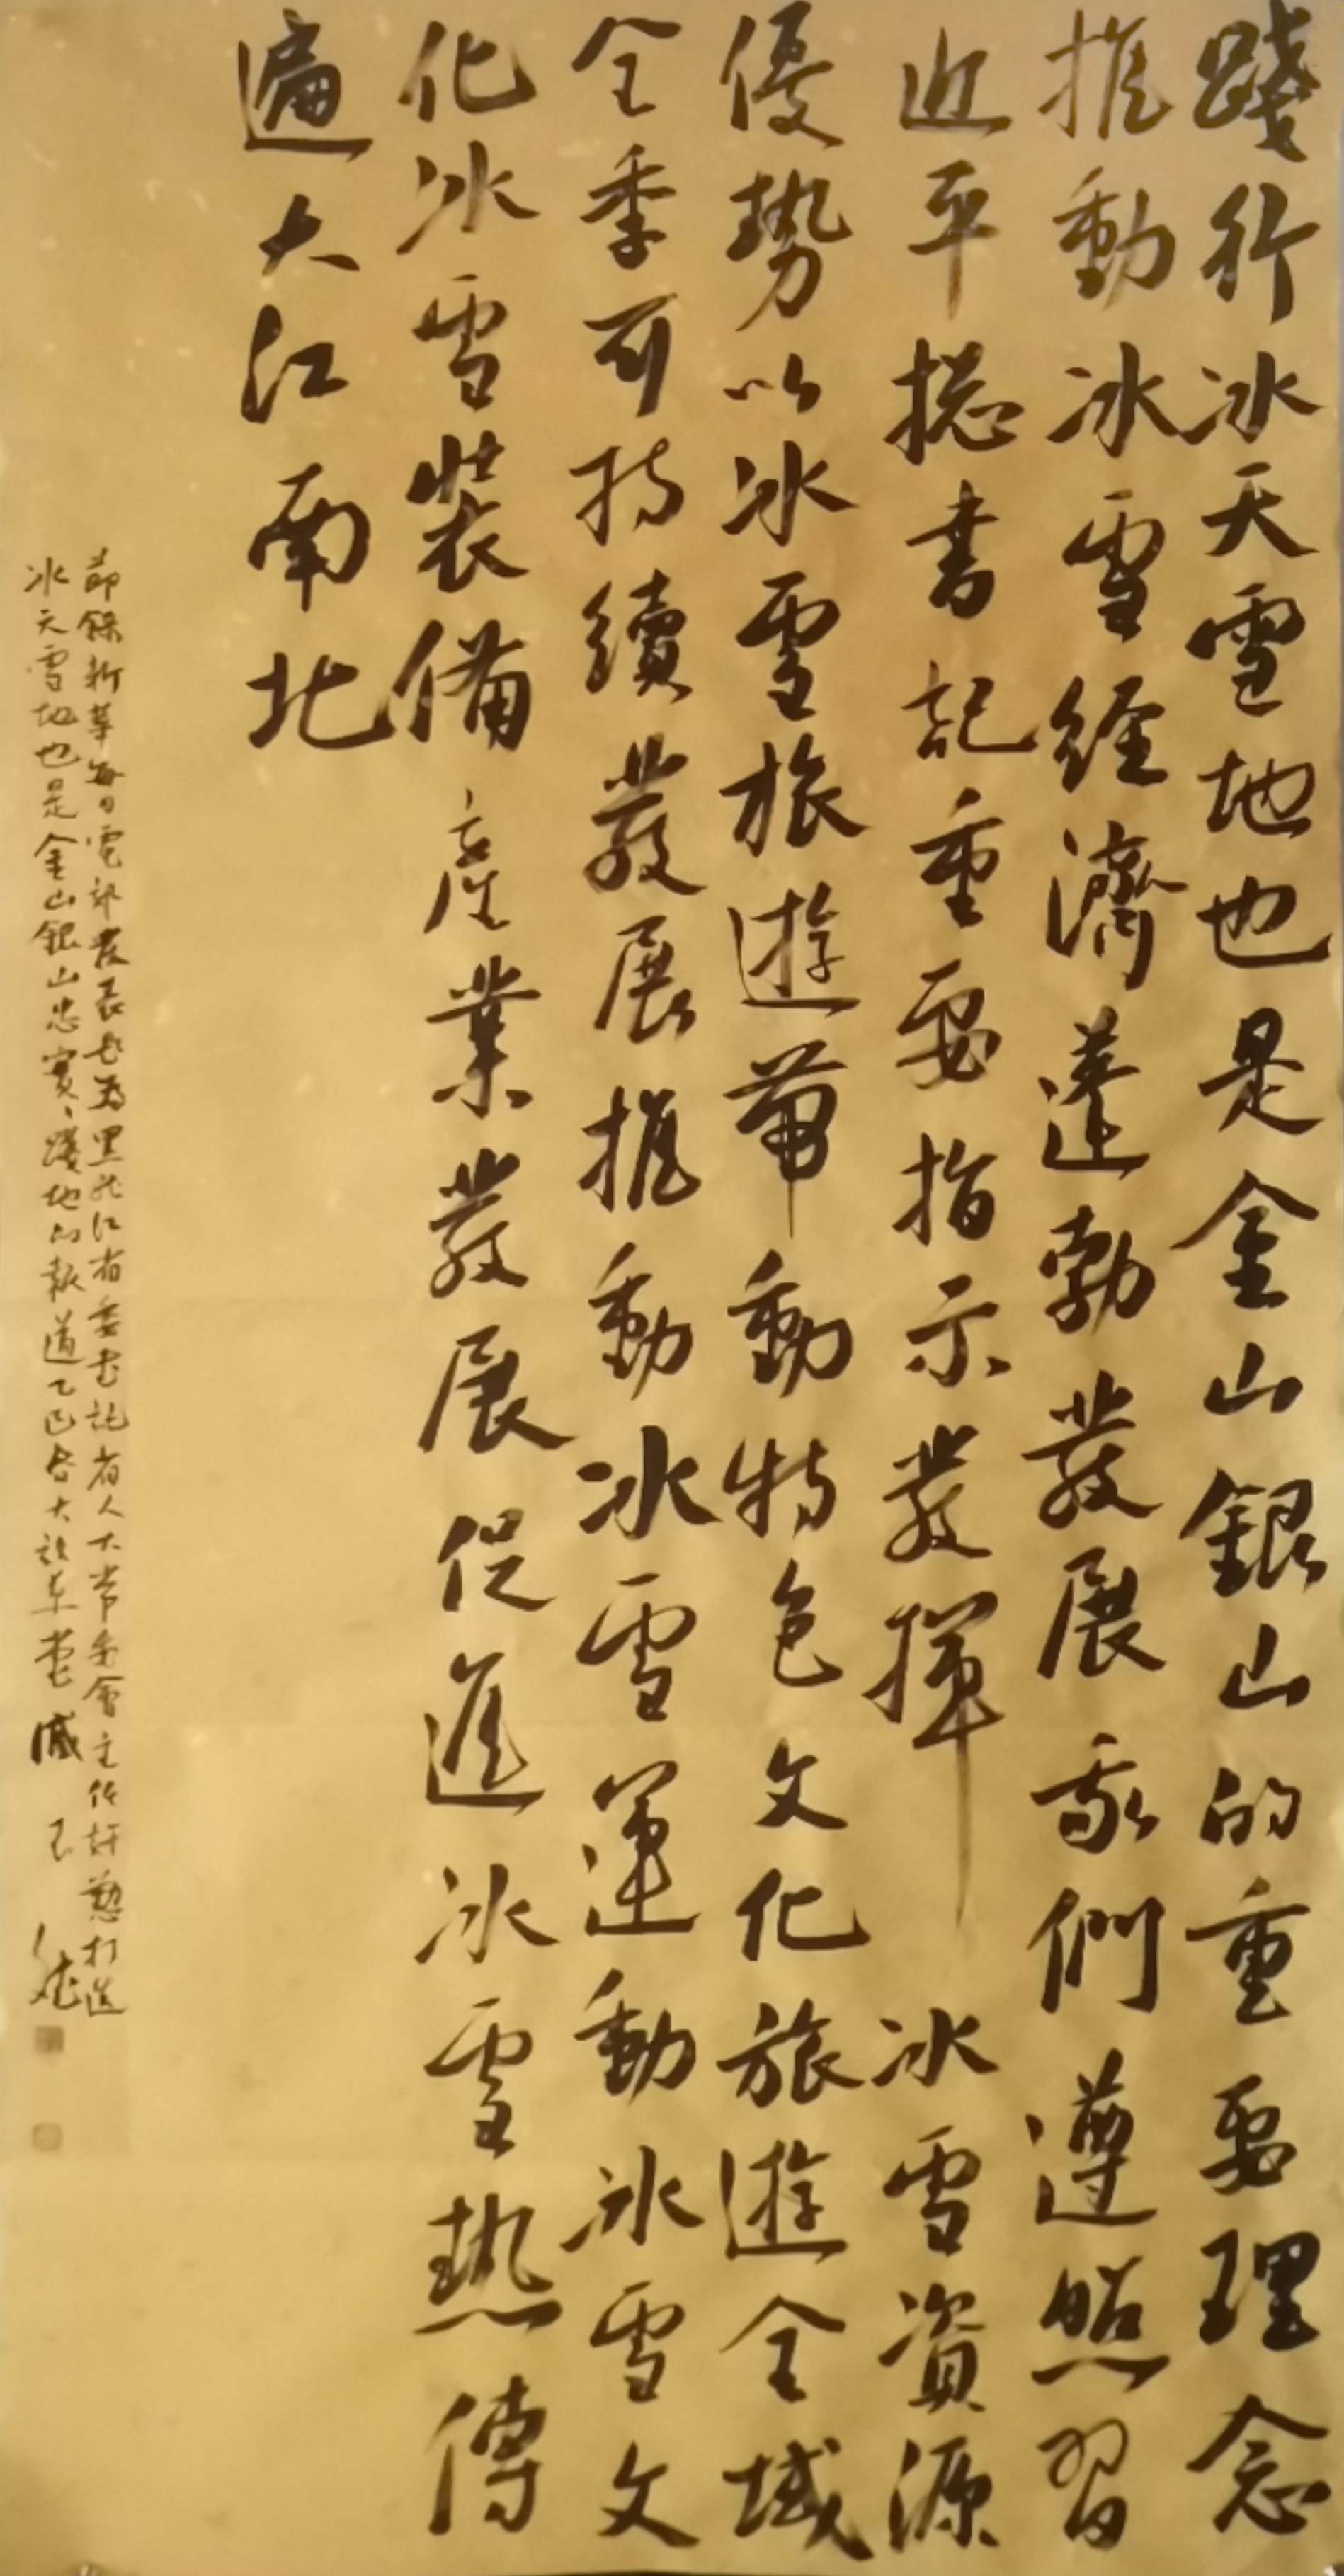 踐行冰天雪地也是金山銀山的重要理念
推動冰雪經濟蓬勃發展我們遵照習
近平總書記重要指示發揮冰雪資源
優勢以冰雪旅遊帶動特色文化旅遊全域
全季可持續發展推動冰雪運動冰雪文
化冰雪裝備產業發展促進冰雪熱傳
遍大江南北
節錄新華每日電訊發表長文為黑龍江省委書記省人大常委會主任許勤打造
冰天雪地也是金山銀山忠實實踐地的報道乙巳春大